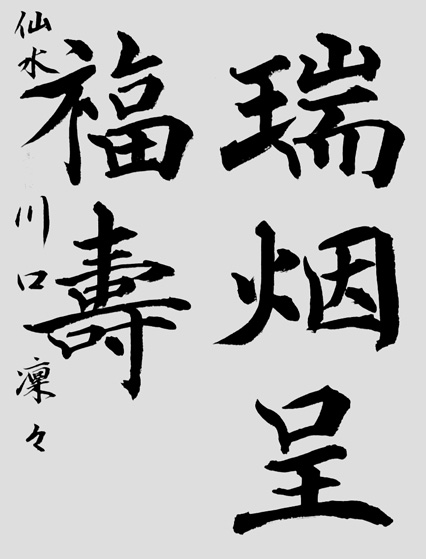 瑞烟呈
福壽
仙水 川口 凜々